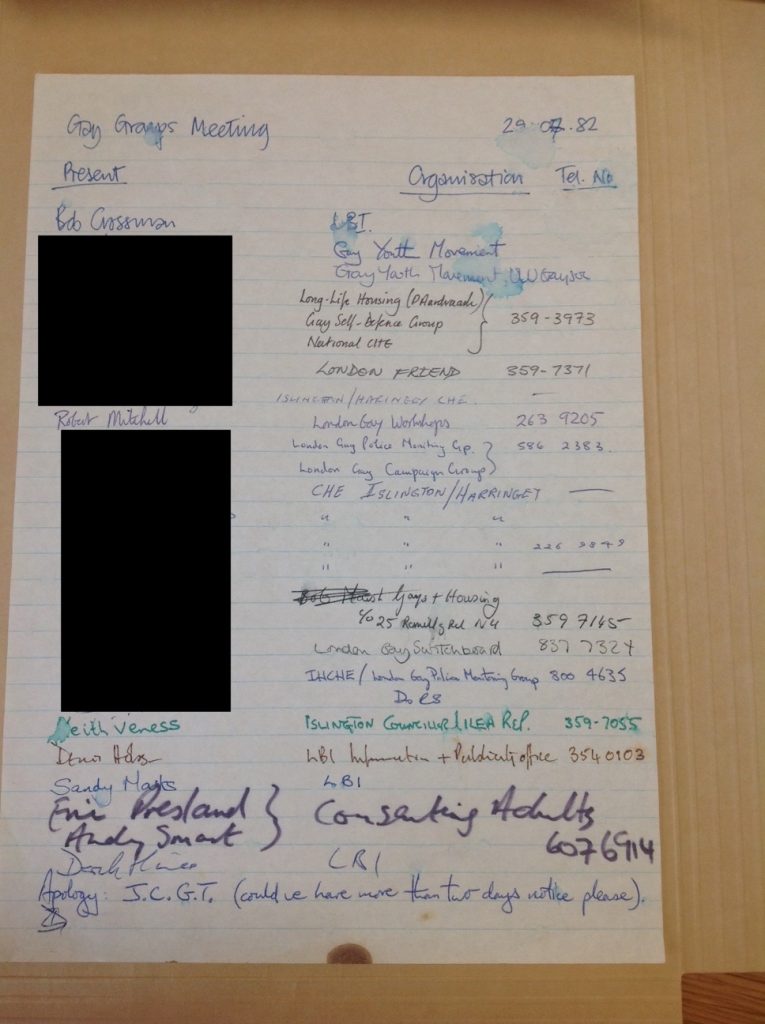 Gay Groups Meeting 29.07.82
Present Organisation Tel. No
Bob Crossman LBI.
Gay Youth Movement
Gay Youth Movement,
Long-Life Housing
Gay Self-Defence Group 359-3973
National CHE
LONDON FRIEND 359-7371
ISLINGTON/HARINGEY CHE. —
Robert Mitchell London Gay Workshops 263 9205
London Gay Police Monitoring Gp. 586 2383.
London Gay Campaign Group
CHE ISLINGTON/HARRINGEY —
" " "
" " " 226 9849
" " " —
Gays + Housing
c/o 25 Rd N4 359 7145
London Gay Switchboard 837 7324
IHCHE / London Gay Police Monitoring Group 800 4635
Keith Veness ISLINGTON COUNCILLOR / ILEA REP. 359-7055
LBI Information + Publicity office 354 0103
Sandy LBI
Eric Presland } Consenting Adults
Andy Smart 607 6914
LBI
Apology: J.C.G.T. (could we have more than two days notice please).